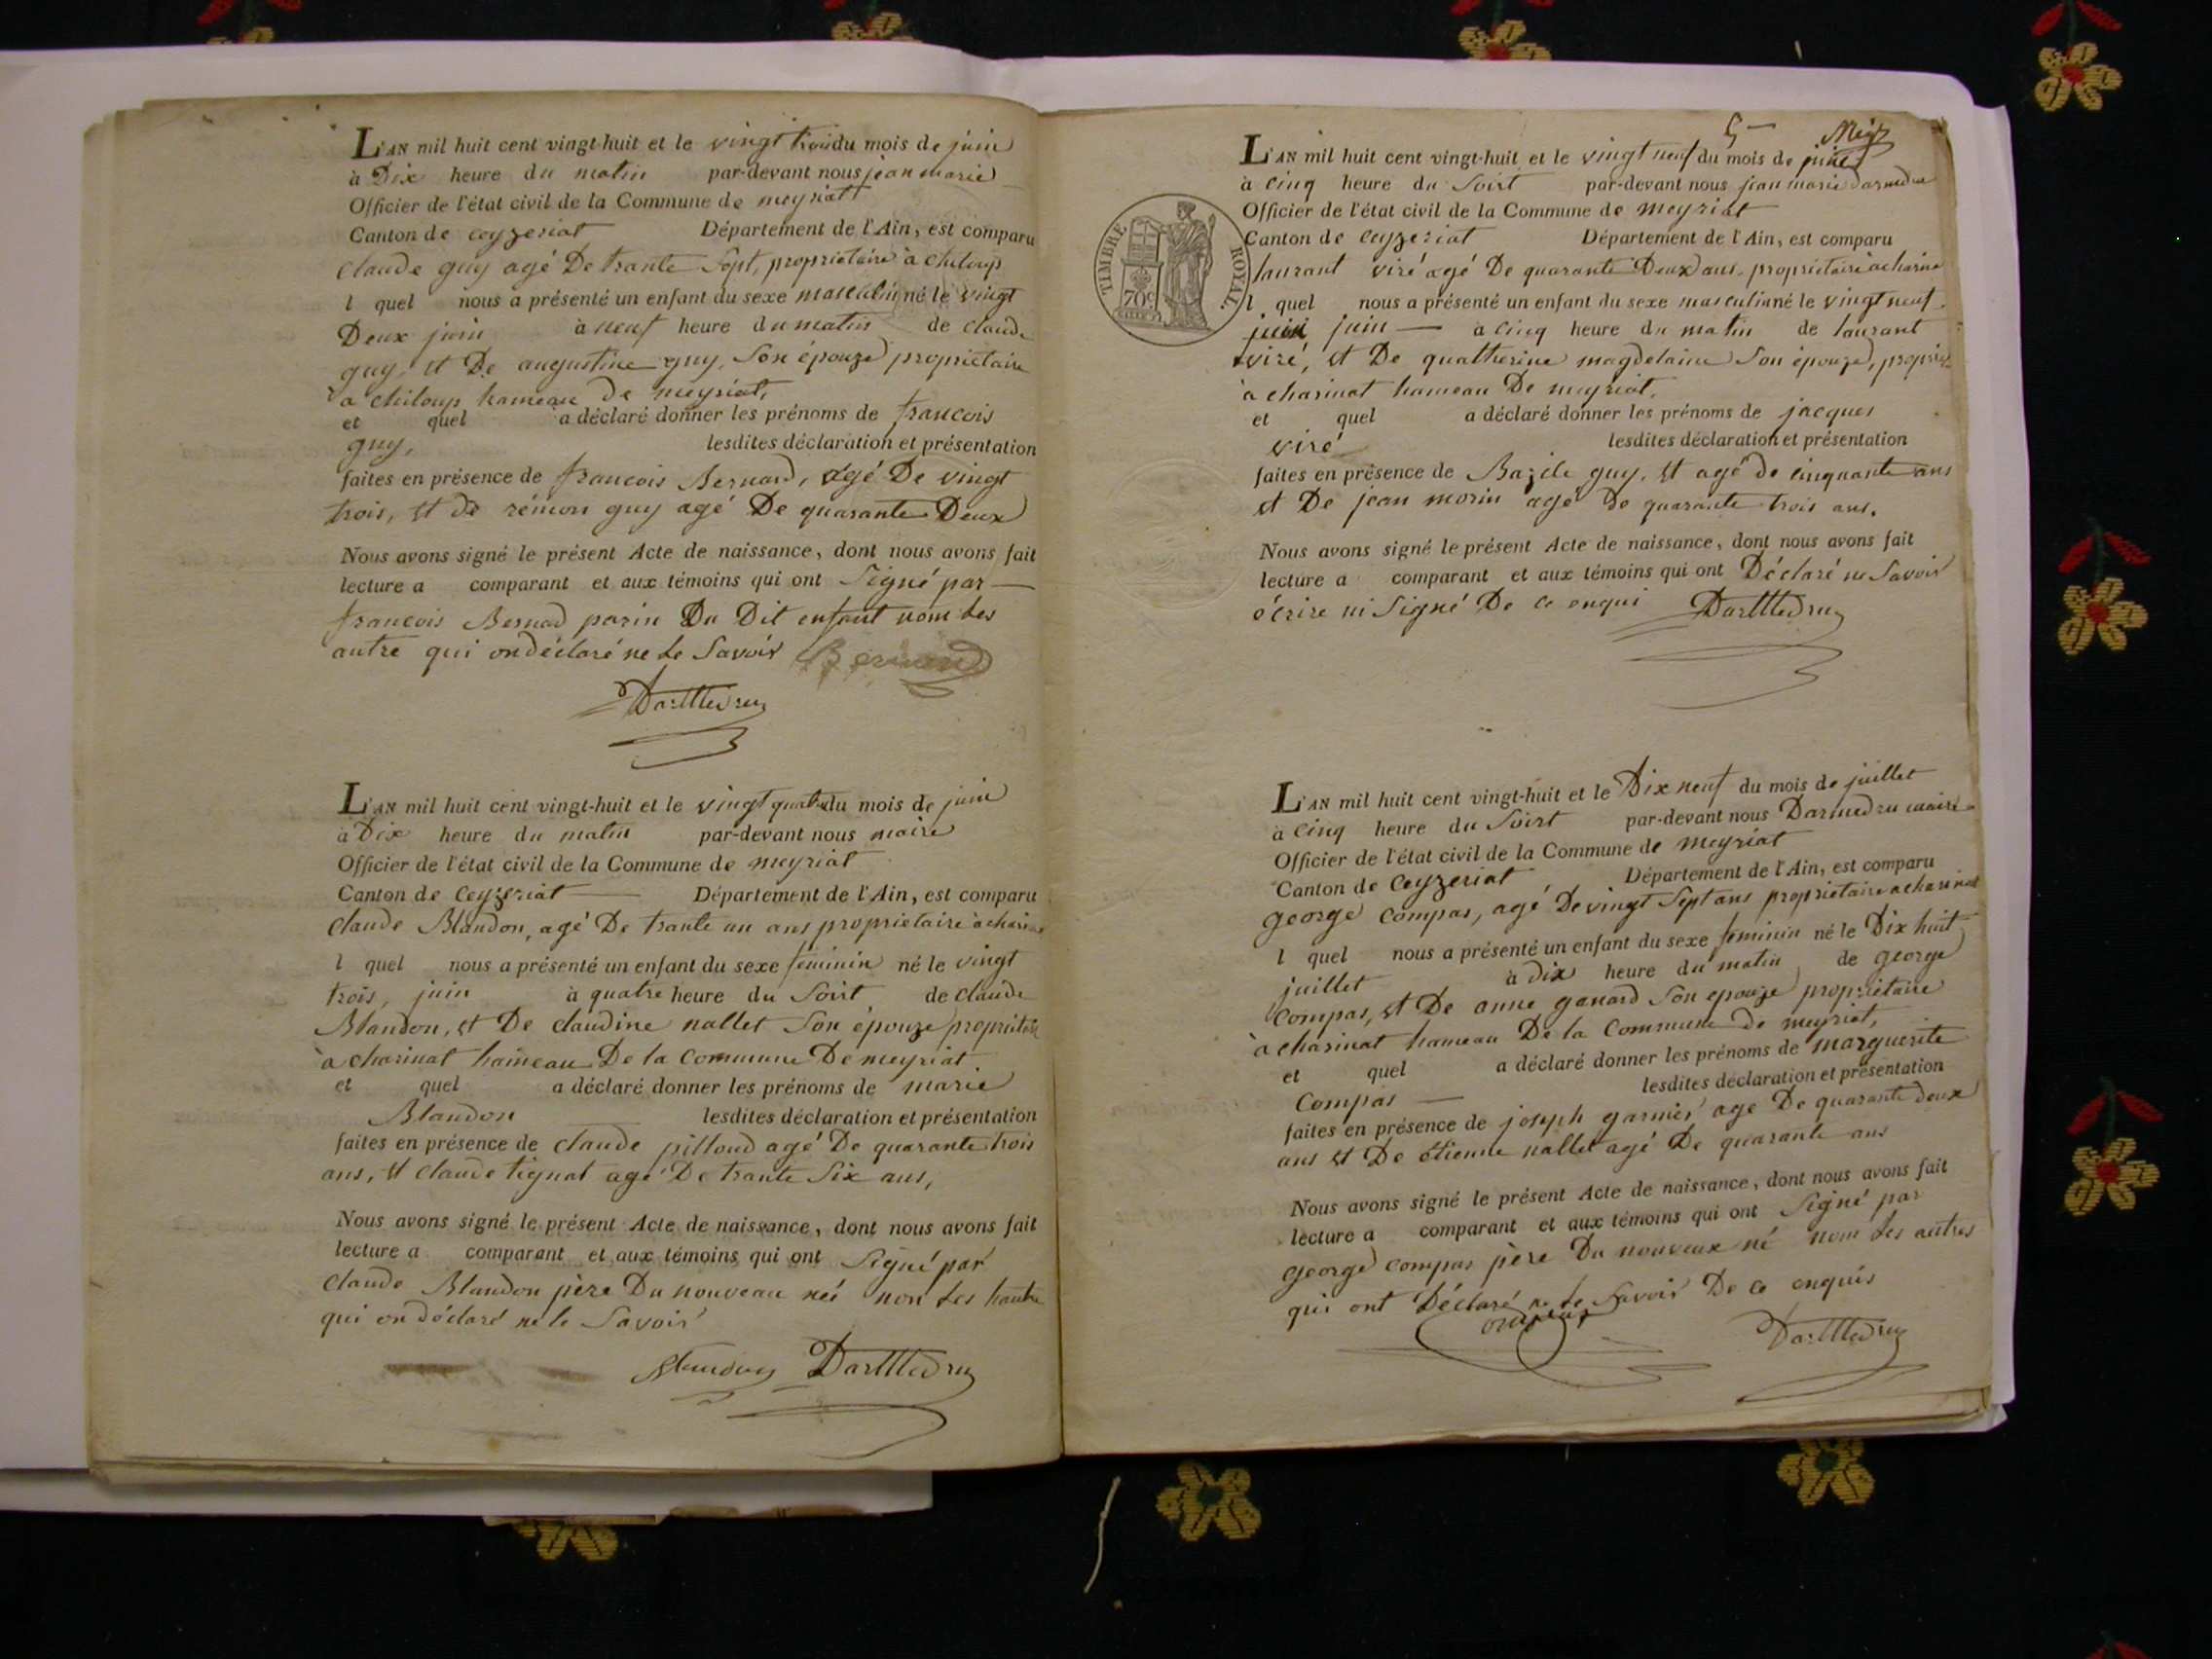 L'AN mil huit cent vingt-huit et le vingt trois du mois de juin
à Dix heure du matin par-devant nous jean marie
Officier de l'état civil de la Commune de meyriat
Canton de ceyzeriat Département de l'Ain, est comparu
claude guy agé De trante Sept, propriétaire à chiloup
l quel nous a présenté un enfant du sexe masculin né le vingt
Deux juin à neuf heure du matin de claude
guy, et De augustine guy, Son épouze propriétaire
a chiloup hameau de meyriat,
et quel a déclaré donner les prénoms de francois
guy, lesdites déclaration et présentation
faites en présence de francois Bernard, agé De vingt
trois, et de rémon guy agé De quarante Deux
Nous avons signé le présent Acte de naissance, dont nous avons fait
lecture a comparant et aux témoins qui ont Signé par
francois Bernad parin Du Dit enfant nom les
autre qui on déclaré ne le Savoir Bernard
DarMedru
L'AN mil huit cent vingt-huit et le vingt quatre du mois de juin
à Dix heure du matin par-devant nous maire
Officier de l'état civil de la Commune de meyriat
Canton de Ceyzeriat Département de l'Ain, est comparu
claude Blandon, agé De trante un ans propriétaire à charinat
l quel nous a présenté un enfant du sexe féminin né le vingt
trois, juin à quatre heure du Soirt de claude
Blandon, et De claudine nallet Son épouze propriétaire
à charinat hameau De la Commune De meyriat
et quel a déclaré donner les prénoms de marie
Blandon lesdites déclaration et présentation
faites en présence de claude pilloud agé De quarante trois
ans, et claude tignat agé De trante Six ans,
Nous avons signé le présent Acte de naissance, dont nous avons fait
lecture a comparant et aux témoins qui ont Signé par
claude Blandon père Du nouveau néé non les hautre
qui on déclaré ne le Savoir
Blandon DarMedru
5
L'AN mil huit cent vingt-huit et le vingt neuf du mois de juin
à cinq heure du Soirt par-devant nous jean marie darmedru
Officier de l'état civil de la Commune de meyriat
Canton de Ceyzeriat Département de l'Ain, est comparu
laurant viré agé De quarante Deux ans, propriétaire a charinat
l quel nous a présenté un enfant du sexe masculin né le vingt neuf
juin juin à cinq heure du matin de laurant
viré, et De quatherine magdelaine Son épouze, propriét
à charinat hameau De meyriat,
et quel a déclaré donner les prénoms de jacques
viré lesdites déclaration et présentation
faites en présence de Bazile guy, et agé de cinquante ans
et De jean morin agé de quarante trois ans.
Nous avons signé le présent Acte de naissance, dont nous avons fait
lecture a comparant et aux témoins qui ont Déclaré ne Savoir
écrire ni Signé De ce enqui DarMedru
TIMBRE ROYAL
70c
L'AN mil huit cent vingt-huit et le Dix neuf du mois de juillet
à Cinq heure du Soirt par-devant nous Darmedru maire
Officier de l'état civil de la Commune de meyriat
Canton de Ceyzeriat Département de l'Ain, est comparu
george compas, agé De vingt Sept ans propriétaire a charinat
l quel nous a présenté un enfant du sexe féminin né le Dix huit
juillet à dix heure du matin de george
Compas, et De anne ganard Son epouze propriétaire
à charinat hameau De la Commune de meyriat,
et quel a déclaré donner les prénoms de marguerite
Compas lesdites déclaration et présentation
faites en présence de joseph garnier age De quarante deux
ans et De étienne nallet agé De quarante ans
Nous avons signé le présent Acte de naissance, dont nous avons fait
lecture a comparant et aux témoins qui ont Signé par
george compas père Du nouveux né nom les autres
qui ont Déclaré ne le Savoir De ce enquis
DarMedru